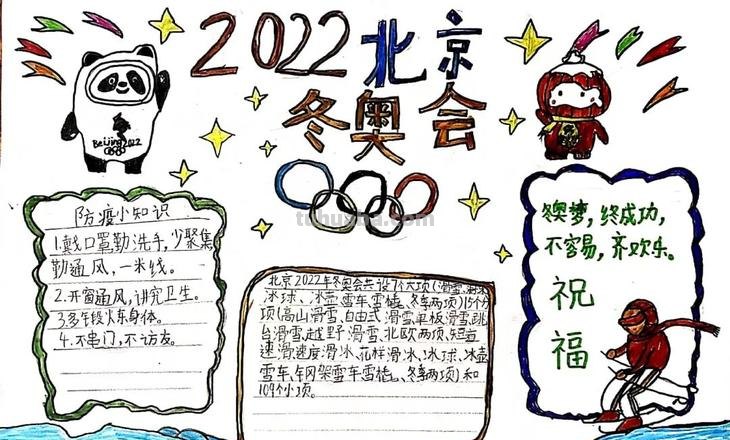 2022北京
冬奥会
Beijing2022
防疫小知识
1.戴口罩勤洗手,少聚集
勤通风,一米线。
2.开窗通风,讲究卫生。
3.多年段火东身体。
4.不串门,不访友。
tuhuaba.com
北京2022年冬奥会共设7个大项(滑雪、
冰球、冰壶、雪车、雪橇、冬季两项)15个分
项(高山滑雪、自由式滑雪、单板滑雪、跳
台滑雪、越野滑雪、北欧两项、短道
速滑、速度滑冰、花样滑冰、冰球、冰壶
雪车、钢架雪车雪橇、冬季两项)和
109个小项。
冬奥梦,终成功,
不容易,齐欢乐。
祝
福